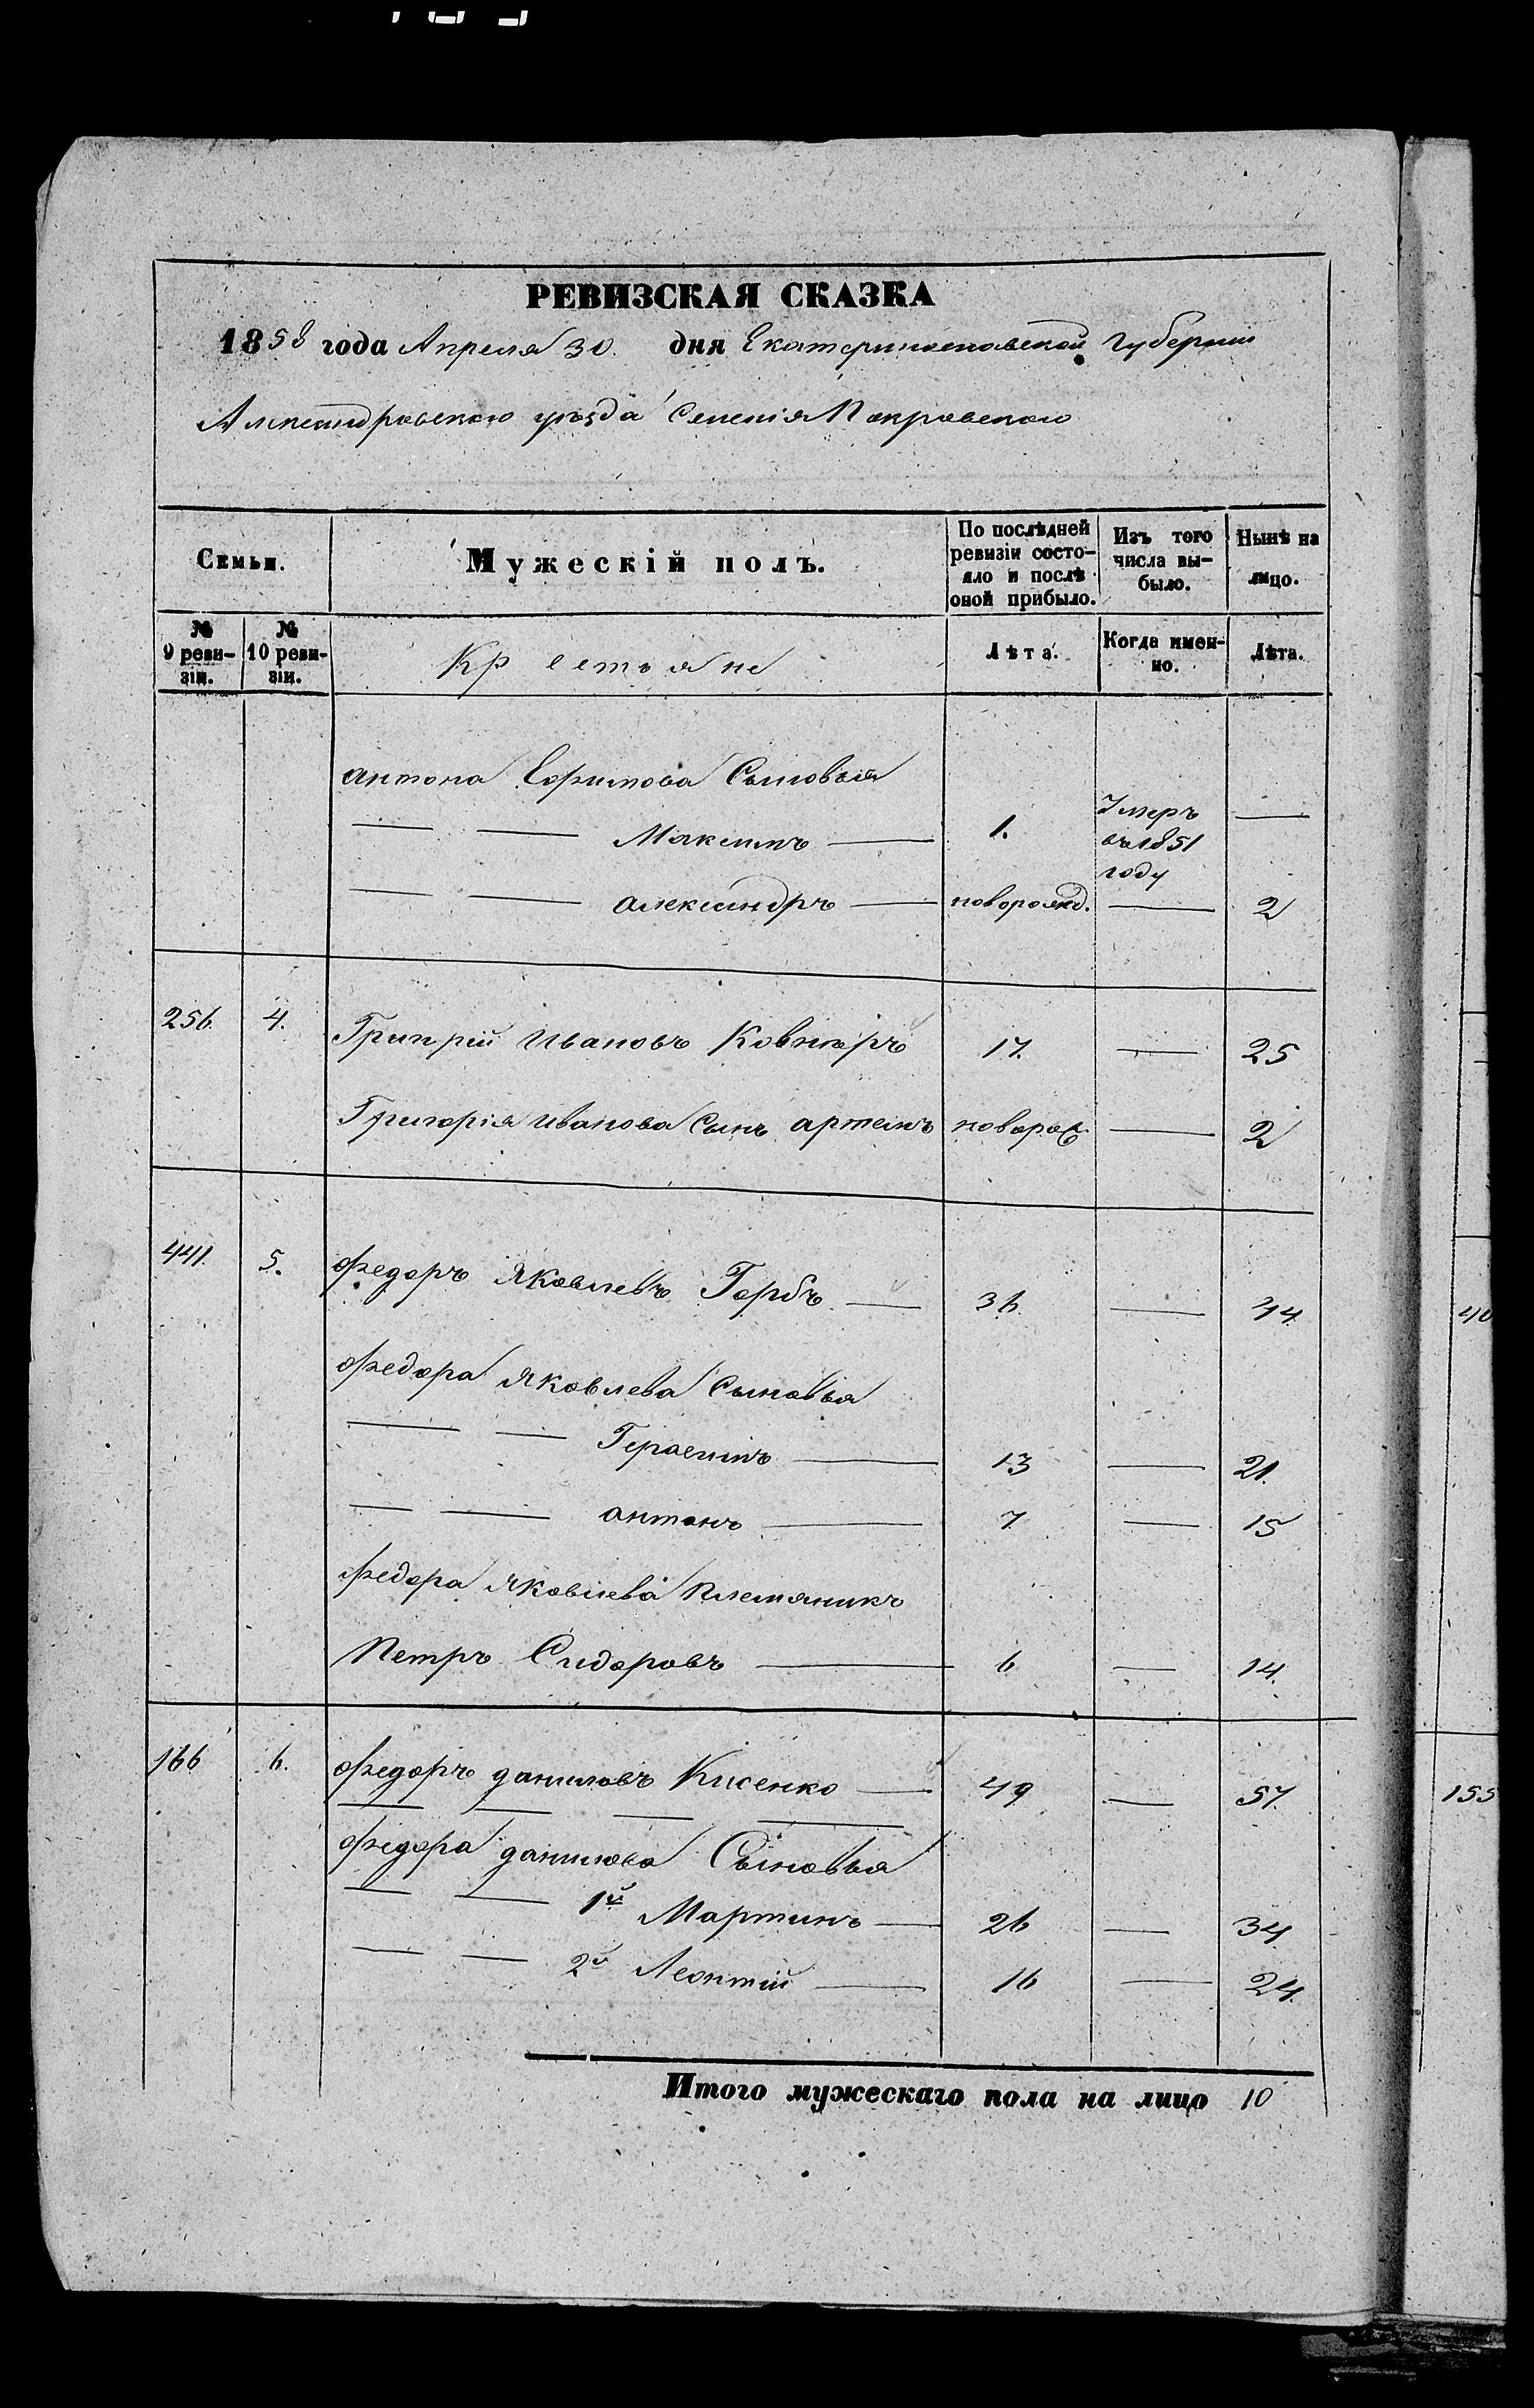 РЕВИЗСКАЯ СКАЗКА
1858 года Апреля 30. дня Екатеринославской Губернии
Александровского уѣзда Селенія Покровского
Семьи. Мужескій полъ. По послѣдней ревизіи состояло и послѣ оной прибыло. Изъ того числа выбыло. Нынѣ на лицо.
№ 9 ревизіи. № 10 ревизіи. Крестьяне Лѣта. Когда именно. Лѣта.
Антона Ефимова Сыновья
— — Максимъ — 1. Умеръ въ 1851 году —
— — Александръ — новорожд. — 2
256. 4. Григорій Ивановъ Ковняръ 17. — 25
Григорія Иванова Сынъ Артемъ новорож — 2
441. 5. Федоръ Яковлевъ Горбъ — 36 — 44
Федора Яковлева Сыновья
— — Герасимъ — 13 — 21.
— — Антонъ — 7 — 15
Федора Яковлева Племяникъ
Петръ Сидоровъ — 6 — 14.
166 6. Федоръ Даниловъ Кисенко — 49 — 57.
— — — —
Федора Данилова Сыновья
— — 1й Мартинъ — 26 — 34
— — 2й Леонтій — 16 — 24.
Итого мужескаго пола на лицо 10
40
155